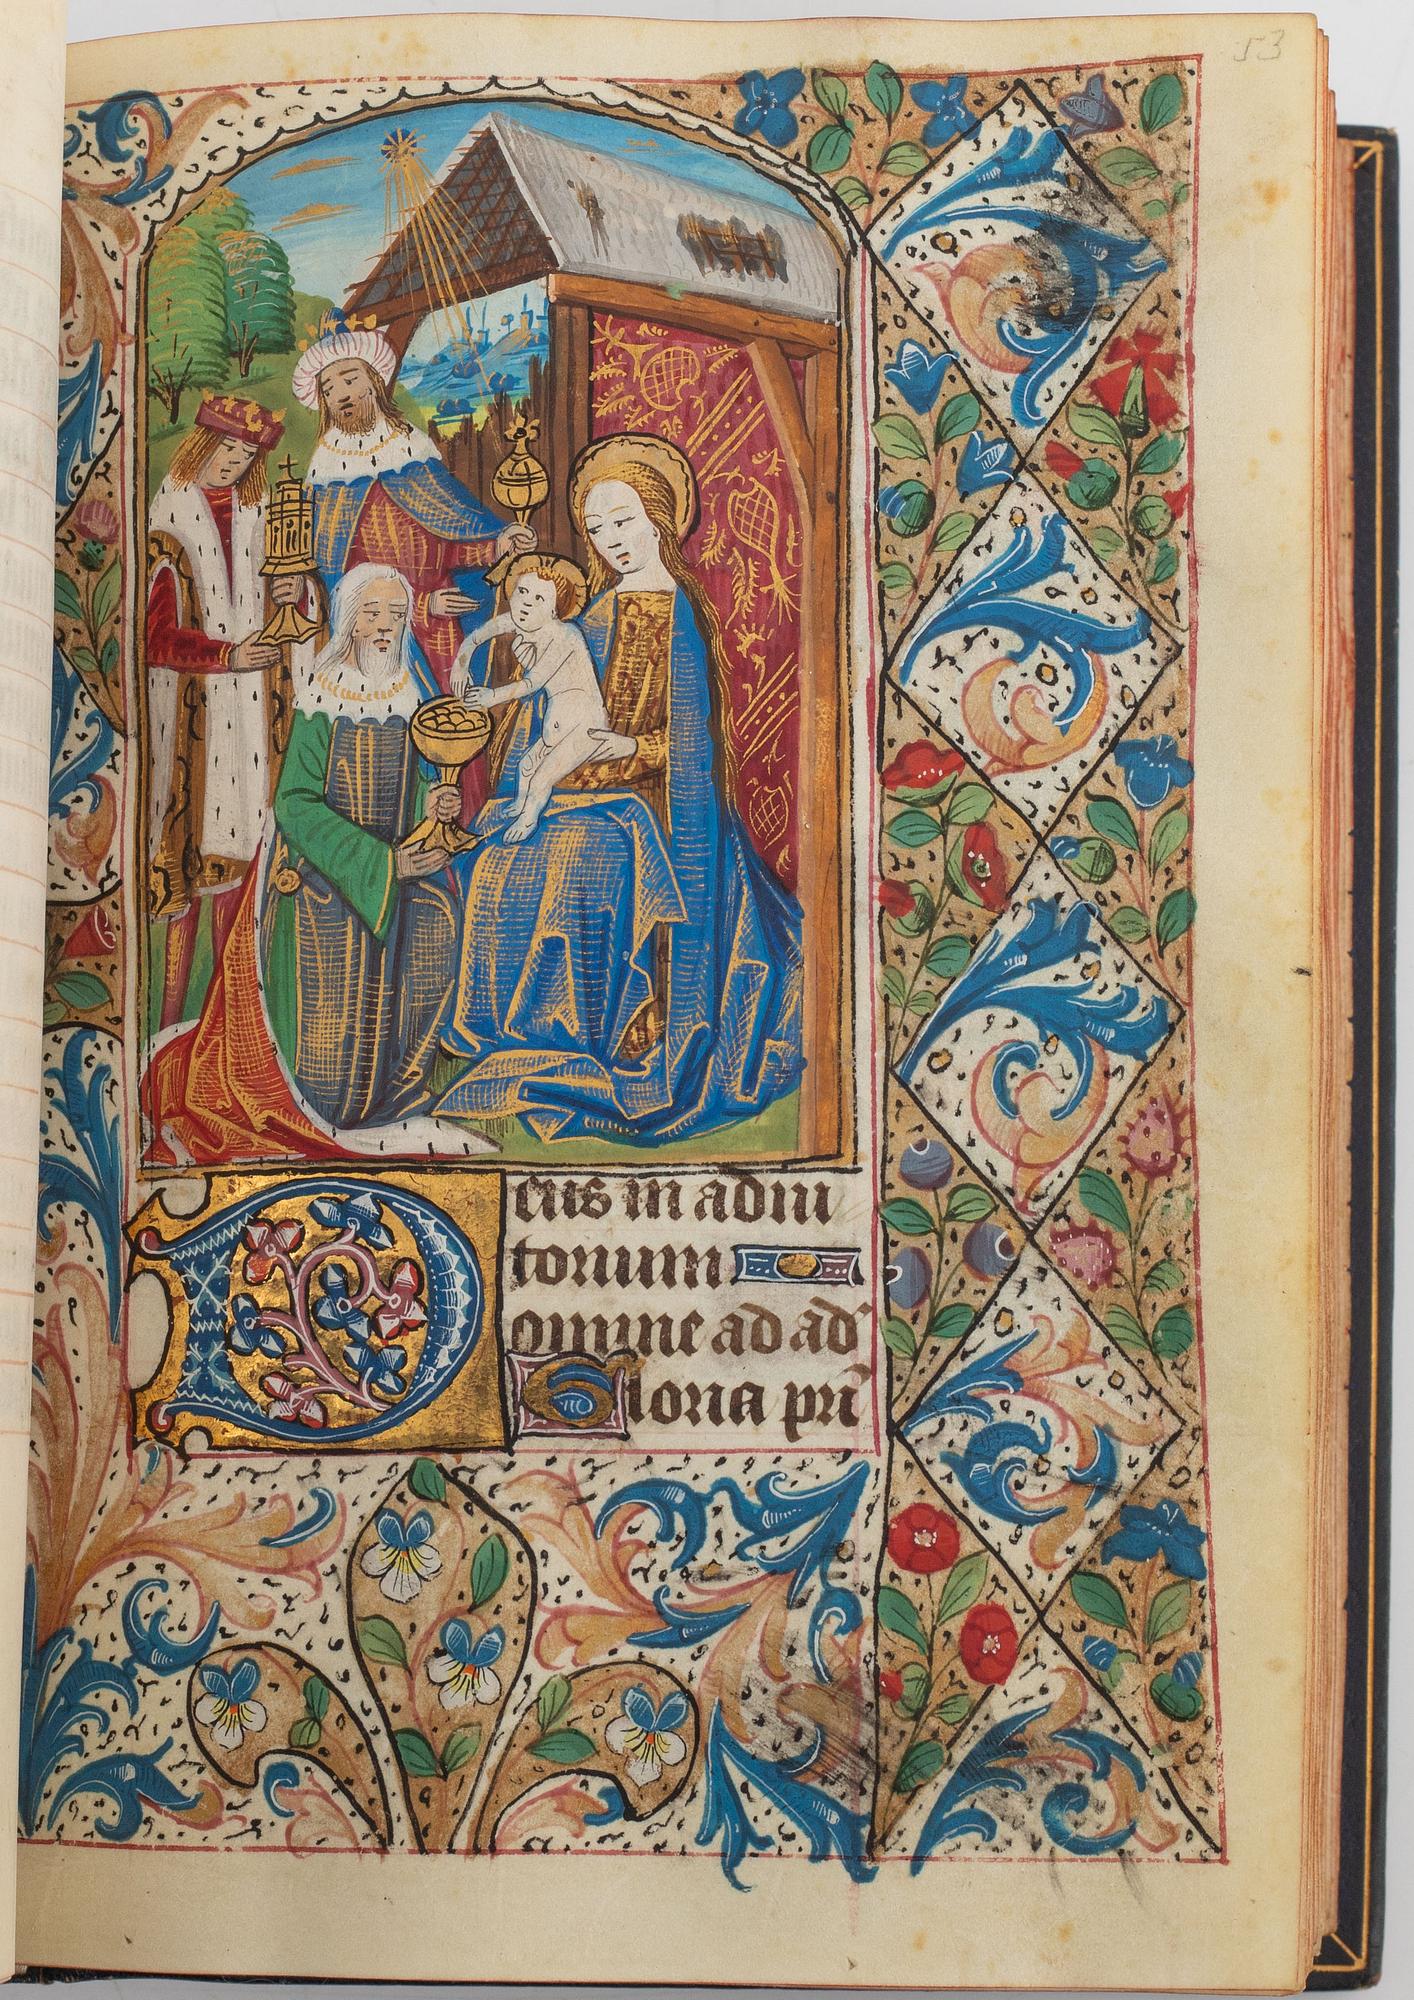 53
Deus in adiu
torium
omine ad ad
Gloria pri